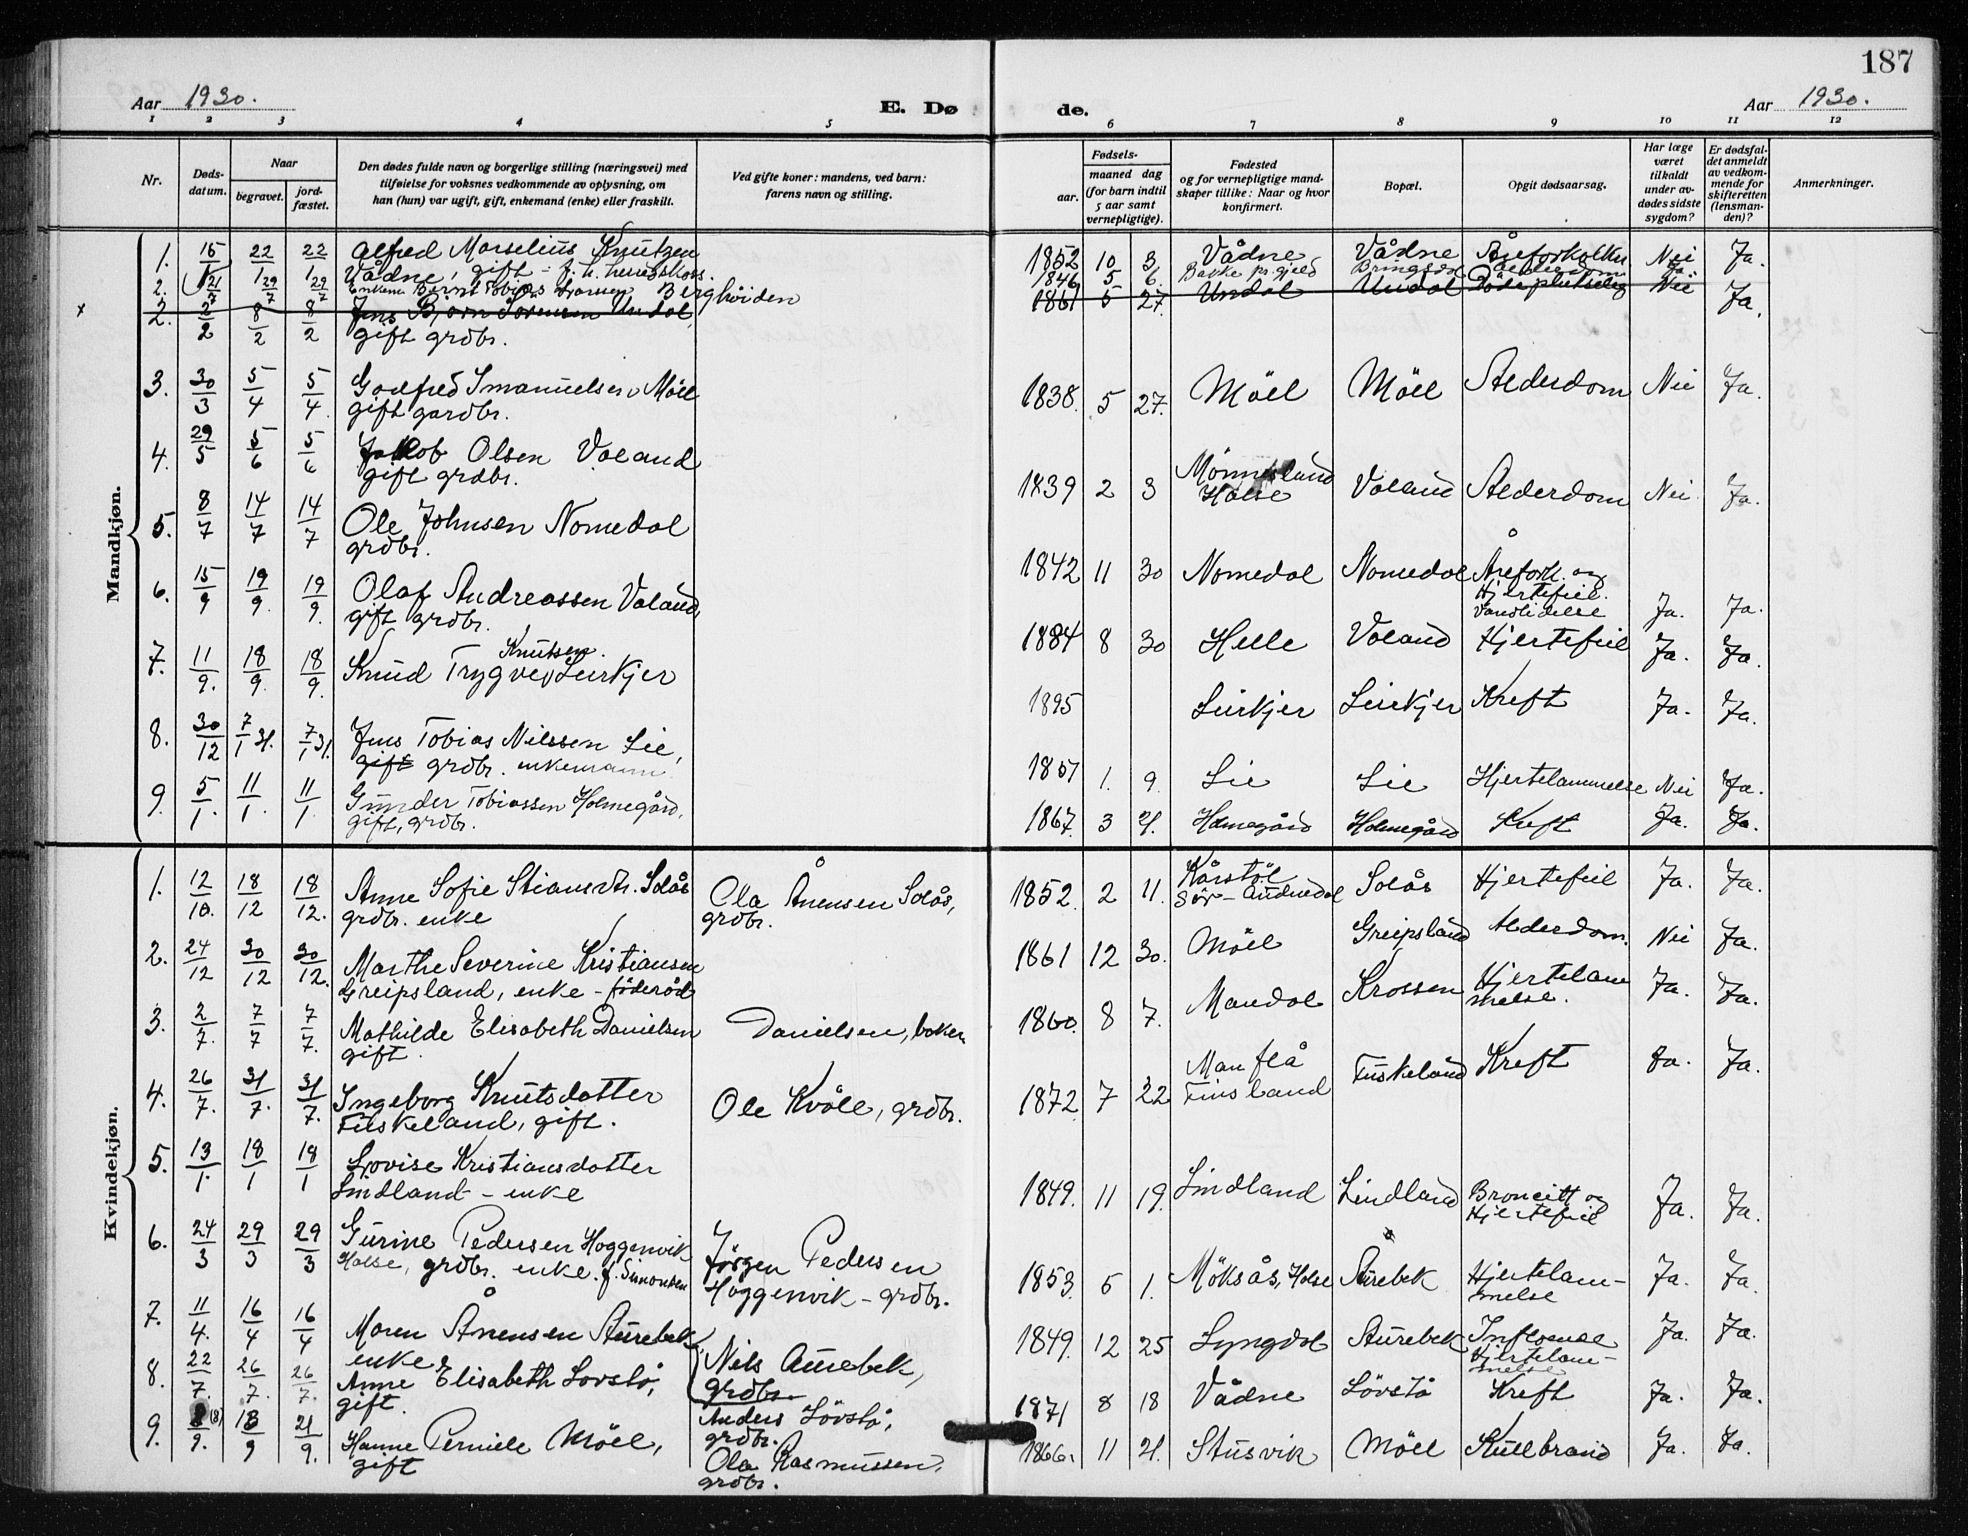 187
Aar 1930.
E. Dø de.
Aar 1930.
1 2 3 4 5 6 7 8 9 10 11 12
Nr.
Døds-
datum.
Naar
begravet.
jord-
fæstet.
Den dødes fulde navn og borgerlige stilling (næringsvei) med
tilføielse for voksnes vedkommende av oplysning, om
han (hun) var ugift, gift, enkemand (enke) eller fraskilt.
Ved gifte koner: mandens, ved barn:
farens navn og stilling.
Fødsels-
aar.
maaned dag
(for barn indtil
5 aar samt
vernepligtige).
Fødested
og for vernepligtige mand-
skaper tillike: Naar og hvor
konfirmert.
Bopæl.
Opgit dødsaarsag.
Har læge
været
tilkaldt
under av-
dødes sidste
sygdom?
Er dødsfal-
det anmeldt
av vedkom-
mende for
skifteretten
(lensman-
den)?
Anmerkninger.
Mandkjøn.
1. 15/1 22/1 22/1 Alfred Marselius Knutzen 1852 10 3 Vådne Vådne Åreforkalkn Nei Ja.
Vådne, gift - f. h.
2. 21/7 29/7 29/7 Enkem. Bernt Tobias Larssen Berghöiden 1846 5 6. Bakke pr.gjeld Bringsdal Alderdom Ja
x 2. 2/2 8/2 8/2 Jens Björn Sörensen Undal, 1861 5 27. Undal Undal Döde plutselig Nei Ja.
gift grdbr.
3. 30/3 5/4 5/4 Godfred Imanuelsen Möll 1838. 5 27. Möll Möll Alderdom Nei Ja.
gift gardbr.
4. 29/5 5/6 5/6 Jakob Olsen Voland 1839 2 3 Mönnesland Voland Alderdom Nei Ja.
gift grdbr. Holse
5. 8/7 14/7 14/7 Ole Johnsen Nomedal 1842 11 30 Nomedal Nomedal Årefork. og
grdbr. Hjertefeil.
Ja. Ja.
6. 15/9 19/9. 19/9. Olaf Andreassen Voland, 1884 8 30 Helle Voland Hjertefeil Ja. Ja.
gift grdbr.
7. 11/9. 18/9. 18/9. Knud Trygve Knutsen Leirkjer 1895 Leirkjer Leirkjer Kreft Ja. Ja.
8. 30/12 7/1 31. 7/1 31. Jens Tobias Nilssen Lie, 1857 1. 9. Lie Lie Hjertelammelse Nei Ja.
gift grdbr. enkemann.
9. 5/1. 11/1. 11/1. Gunder Tobiassen Holmegård, 1867. 3 21. Holmegård Holmegård Kreft Ja. Ja.
gift, grdbr.
Kvindekjøn.
1. 12/10. 18/12 18/12. Anne Sofie Stiansdtr. Solås Ola Ånensen Solås, 1852. 2 11. Kårstöl Solås Hjertefeil Ja. Ja.
grdbr. enke grdbr. Sör-Audnedal
2. 24/12 30/12 30/12. Marthe Severine Kristiansen 1861 12 30. Möll Greipsland Alderdom. Nei Ja.
Greipsland, enke - föderåd
3. 2/7. 7/7 7/7. Mathilde Elisabeth Danielsen Danielsen, baker 1860. 8 7. Mandal Krossen Hjertelam Ja. Ja.
gift. melse.
4. 26/7. 31/7. 31/7. Ingeborg Knutsdatter Ole Kvåle, grdbr. 1872 7 22 Manflå Fuskeland Kreft Ja. Ja.
Fuskeland, gift. Finsland
5. 13/1. 18/1 18/1 Lovise Kristiansdatter 1849. 11 19. Lindland Lindland Broncitt og Ja. Ja.
Lindland - enke Hjertefeil
6. 24/3 29/3 29/3 Gurine Pedersen Höggenvik Jörgen Pedersen 1853. 5 1. Möksås, Holse Aurebek Hjertelam- Ja. Ja.
Holse, grdbr. enke. f. Simonsen Höggenvik - grdbr. melse
7. 11/4. 16/4 16/4 Maren Ånensen Aurebek Nils Aurebek, 1849. 12 25 Lyngdal Aurebek Influensa Ja. Ja.
enke grdbr. Hjertelam-
melse
8. 22/7. 26/7. 26/7. Anne Elisabeth Lovstö, Anders Lövstö, 1871 8 18 Vådne Lövstö Kreft Ja. Ja.
gift. grdbr.
9. 8/9. (8) 13/9 21/9. Hanne Perniele Möll, Ola Rasmussen, 1866. 11 21. Stusvik Möll Kullbrand Ja. Ja.
gift grdbr.